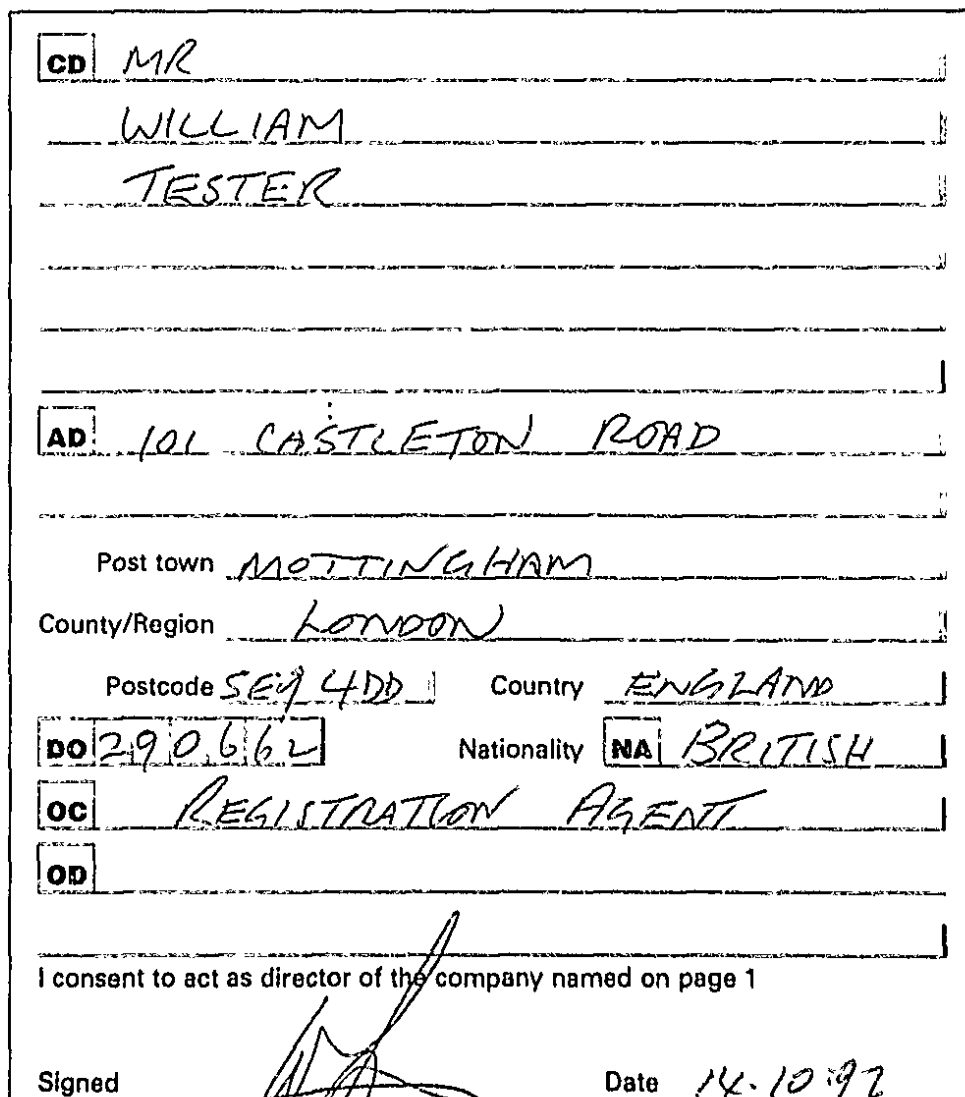 CD MR
WILLIAM
TESTER
AD 101 CASTLETON ROAD
Post town MOTTINGHAM
County/Region LONDON
Postcode SE9 4DD Country ENGLAND
DO 290662 Nationality NA BRITISH
OC REGISTRATION AGENT
OD
I consent to act as director of the company named on page 1
Signed Date 14.10.92